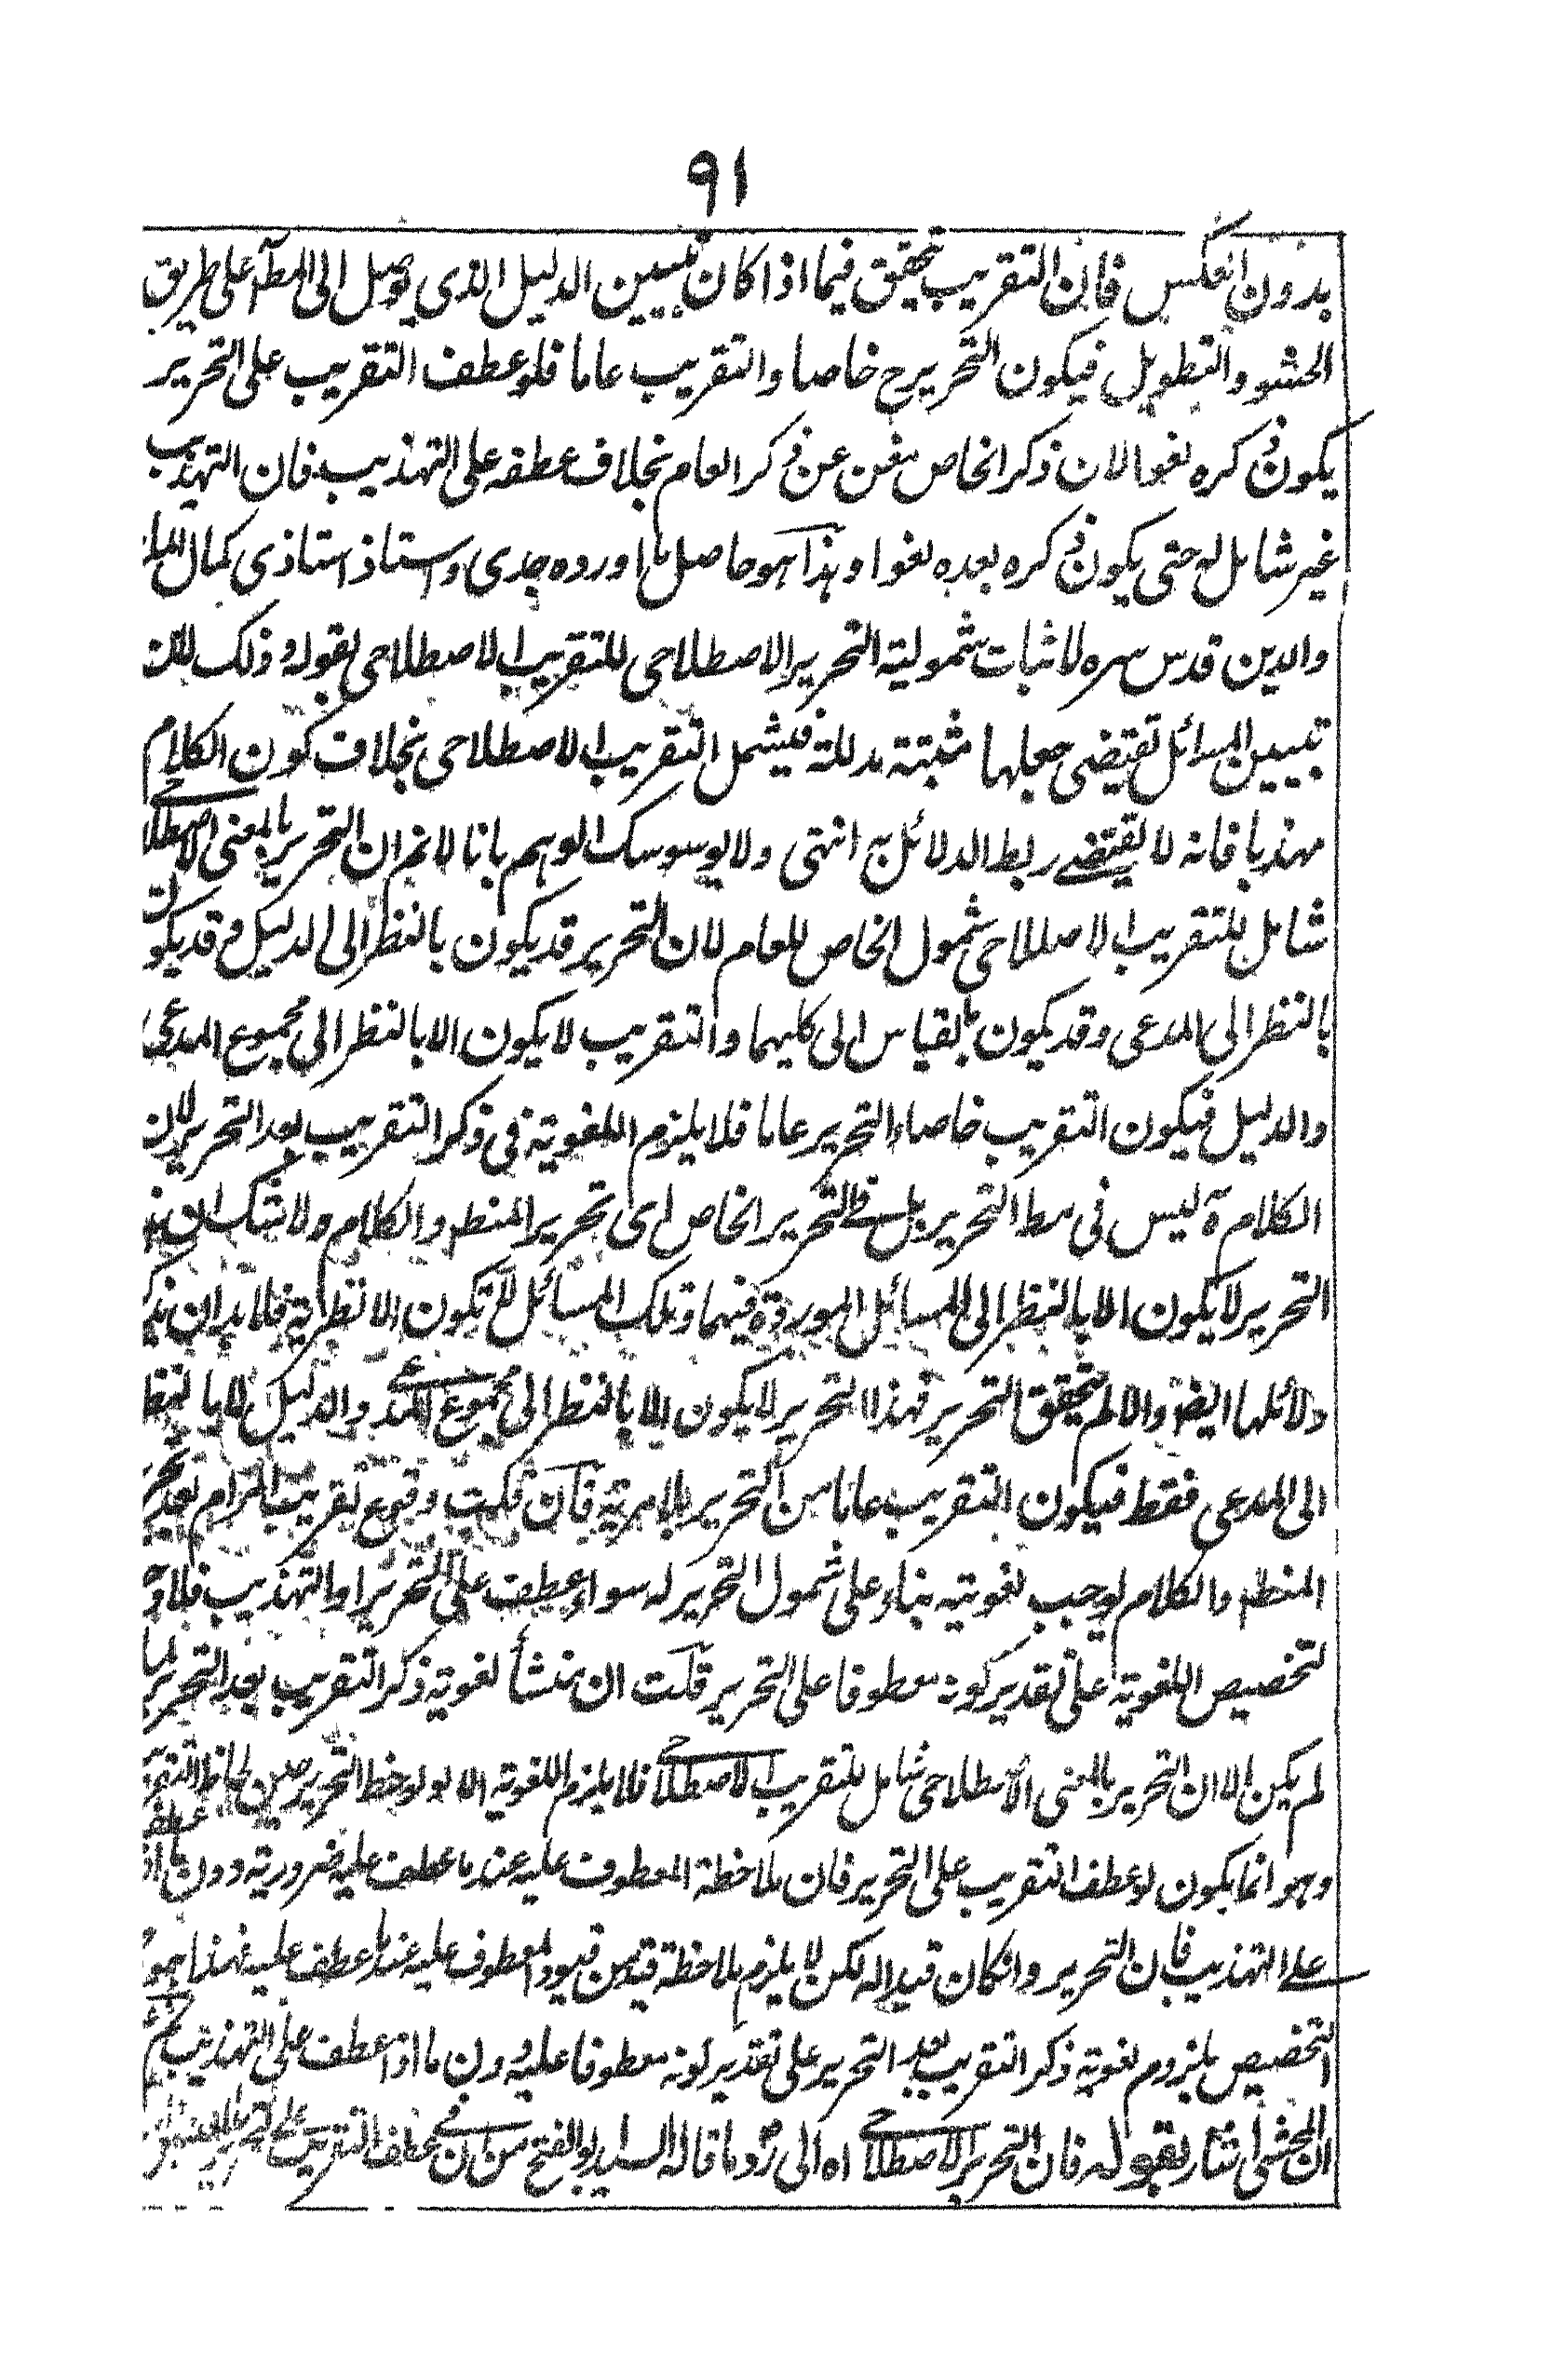 ٩١
بدون العكس فان التقريب يتحقق فيما اذا كان تبيين الدليل الذى يوصل الى المط آه على طريق
الحشو والتطويل فيكون التحرير ح خاصا والتقريب عاما فلو عطف التقريب على التحرير
يكون ذكره لغوا لان ذكر الخاص مغن عن ذكر العام بخلاف عطفه على التهذيب فان التهذيب
غير شامل له حتى يكون ذكره بعده لغوا وهذا هو حاصل ما اورده جدى واستاذ استاذى كمال الملة
والدين قدس سره لاثبات شمولية التحرير الاصطلاحى للتقريب الاصطلاحى بقوله وذلك لان
تبيين المسائل تقتضى جعلها مثبتة مدللة فيشمل التقريب الاصطلاحى بخلاف كون الكلام
مهذبا فانه لا يقتضے ربط الدلائل به انتهى ولا يوسوسك الوهم بانا لا نم ان التحرير بالمعنى الاصطلاحے
شامل للتقريب الاصطلاحى شمول الخاص للعام لان التحرير قد يكون بالنظر الى الدليل وقد يكون
بالنظر الى المدعى وقد يكون بالقياس الى كليهما والتقريب لا يكون الا بالنظر الى مجموع المدعى
والدليل فيكون التقريب خاصا والتحرير عاما فلا يلزم اللغوية فى ذكر التقريب بعد التحرير لان
الكلام ة ليس فى مط التحرير بل فے التحرير الخاص اى تحرير المنطق والكلام ولا شك ان هذا
التحرير لا يكون الا بالنظر الى المسائل الموردة فيهما وتلك المسائل لا تكون الا نظرية فلا بد ان تذكر
دلائلها ايضا والا لم يتحقق التحرير فهذا التحرير لا يكون الا بالنظر الى مجموع المدعے والدليل لا بالنظر
الى المدعى فقط فيكون التقريب عاما من التحرير بلا مرية فان قلت وقوع تقريب المرام بعد تحرير
المنطق والكلام يوجب لغويته بناء على شمول التحرير له سواء عطف على التحرير او التهذيب فلا وجه
لتخصيص اللغوية على تقدير كونه معطوفا على التحرير قلت ان منشأ لغوية ذكر التقريب بعد التحرير لما
لم يكن الا ان التحرير بالمعنى الاصطلاحى شامل للتقريب الاصطلاحے فلا يلزم اللغوية الا لو لوحظ التحرير حين لحاظ التقريب
وهو انما يكون لو عطف التقريب على التحرير فان ملاحظة المعطوف عليه عند ما عطف عليه ضرورية دون ما اذا عطف
علے التهذيب فان التحرير وانكان قيدا له لكن لا يلزم ملاحظة قيد من قيود المعطوف عليه عند ما عطف عليه فهذا هو
التخصيص بلزوم لغوية ذكر التقريب بعد التحرير على تقدير كونه معطوفا عليه دون ما اذا عطف على التهذيب ثم
ان المحشى اشار بقوله فان التحرير الاصطلاحے اه الى رد ما قاله السيد ابو الفتح من ان فے عطف التقريب علے التحرير